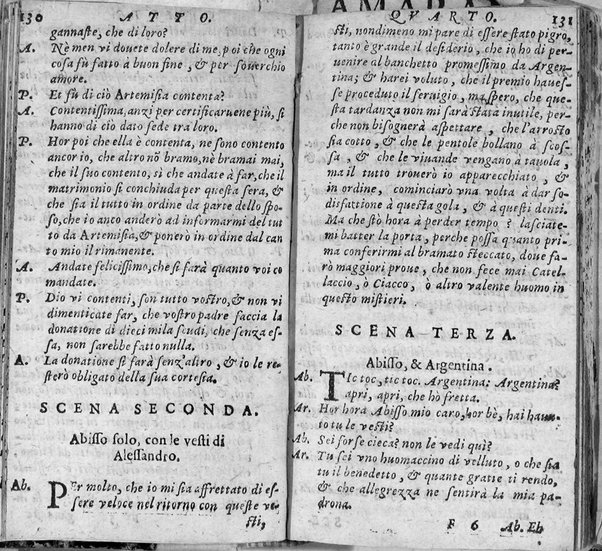 130 ATTO.
gannaste, che di loro?
A. Nè men vi douete dolere di me, poi che ogni
cosa fù fatto à buon fine, & per souerchio
amore.
P. Et fù di ciò Artemisia contenta?
A. Contentissima, anzi per certificaruene più, si
hanno di ciò dato fede tra loro.
P. Hor poi che ella è contenta, ne sono contento
ancor io, che altro nõ bramo, nè bramai mai,
che il suo contento, sì che andate à far, che il
matrimonio si conchiuda per questa sera, &
che sia il tutto in ordine da parte dello spo-
so, che io anco anderò ad informarmi del tut
to da Artemisia, & ponerò in ordine dal can
to mio il rimanente.
A. Andate felicissimo, che si farà quanto voi co
mandate.
P. Dio vi contenti, son tutto vostro, & non vi
dimenticate far, che vostro padre faccia la
donatione di dieci mila scudi, che senza es-
sa, non sarebbe fatto nulla.
A. La donatione si farà senz'altro, & io le re-
sterò obligato della sua cortesia.
SCENA SECONDA.
Abisso solo, con le vesti di
Alessandro.
Ab. PEr molto, che io mi sia affrettato di es-
sere veloce nel ritorno con queste ve-
sti,
AMARA
QVARTO. 131
sti, nondimeno mi pare di essere stato pigro,
tanto è grande il desiderio, che io hò di per-
uenire al banchetto promessimo da Argen-
tina; & harei voluto, che il premio hauesse
proceduto il seruigio, ma spero, che que-
sta tardanza non mi sarà stata inutile, per-
che non bisognerà aspettare, che l'arrosto
sia cotto, & che le pentole bollano à scos-
sa, & che le viuande vengano à tauola,
ma il tutto trouerò io apparecchiato, &
in ordine, cominciarò vna volta à dar so-
disfattione à questa gola, & à questi denti.
Ma che stò hora à perder tempo? lasciate-
mi batter la porta, perche possa quanto pri-
ma conferirmi al bramato steccato, doue fa-
rò maggiori proue, che non fece mai Catel-
laccio, ò Ciacco, ò altro valente huomo in
questo mistieri.
SCENA TERZA.
Abisso, & Argentina.
Ab. TIc toc, tic toc. Argentina: Argentina?
apri, apri, che hò fretta.
Ar. Hor hora Abisso mio caro, hor bè, hai hauu
to tu le vesti?
Ab. Sei forse cieca? non le vedi quì?
Ar. Tu sei vno huomaccino di velluto, o che sia
tu il benedetto, & quante gratie ti rendo,
& che allegrezza ne sentirà la mia pa-
drona.
F 6 Ab. Eh